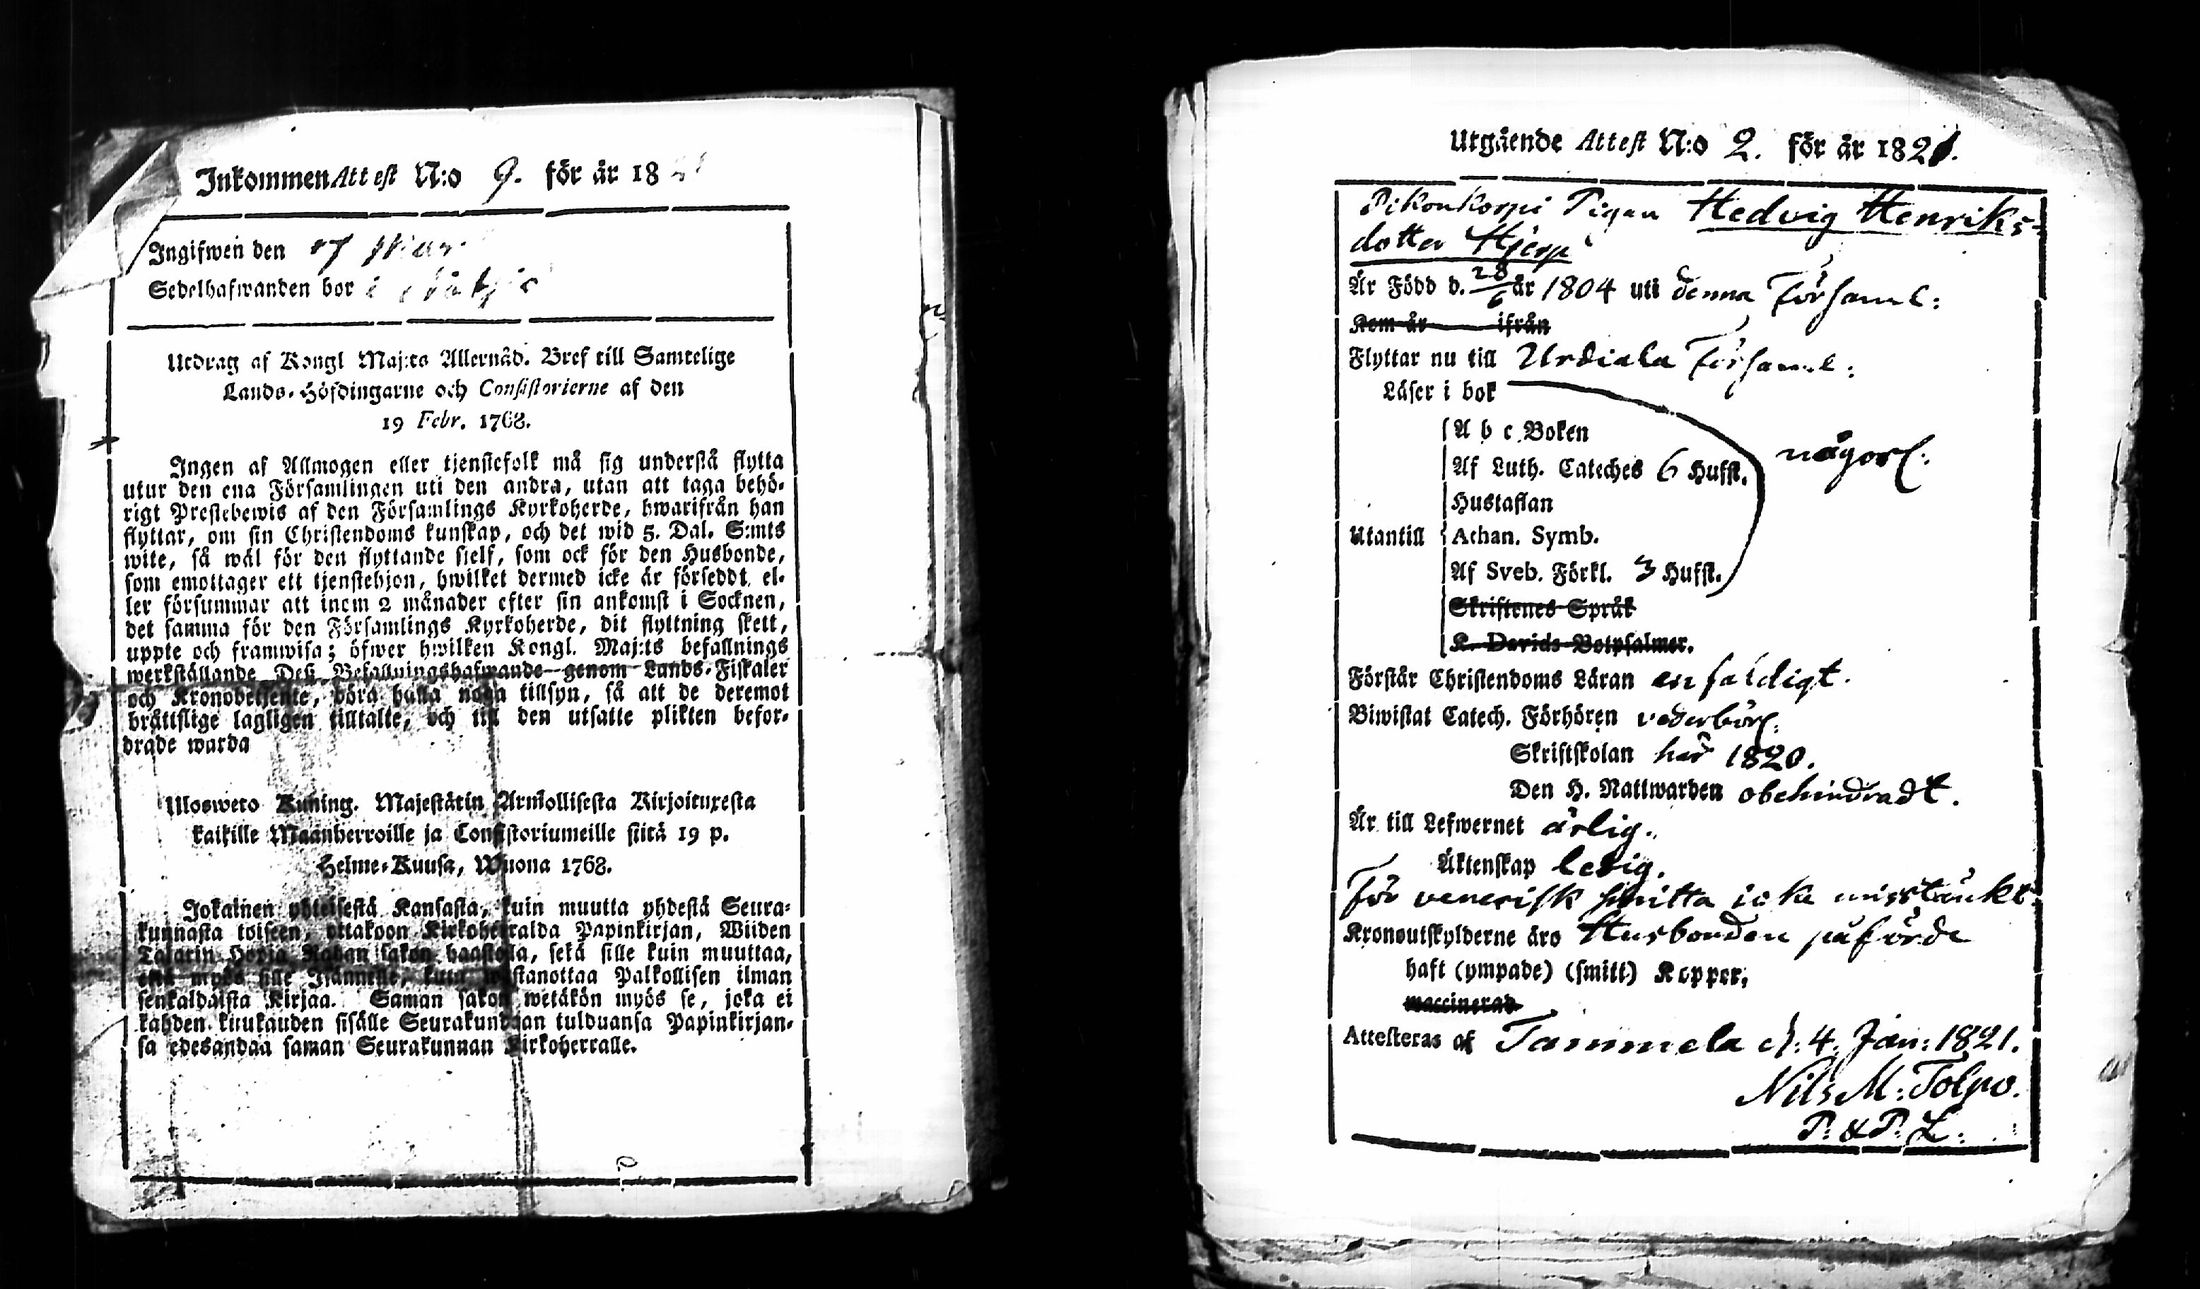 Inkommen Attest N:o 9. för år 18
Ingifwen den 17 Mar
Sedelhafwanden bor i
Utdrag af Kongl Maj:ts Allernåd. Bref till Samtelige
Lands-Höfdingarne och Consistorierne af den
19 Febr. 1768.
Ingen af Allmogen eller tjenstefolk må sig understå flytta
utur den ena Församlingen uti den andra, utan att taga behö-
rigt Prestebewis af den Församlings Kyrkoherde, hwarifrån han
flyttar, om sin Christendoms kunskap, och det wid 5. Dal. S:mts
wite, så wäl för den flyttande sielf, som ock för den Husbonde,
som emottager ett tjenstehjon, hwilket dermed icke är försedt, el-
ler försummar att inom 2 månader efter sin ankomst i Socknen,
det samma för den Församlings Kyrkoherde, dit flyttning skett,
uppte och framwisa; öfwer hwilken Kongl. Maj:ts befallnings
werkställande Deß Befallningshafwande genom Lands-Fiskaler
och Kronobetjente, böra hafa noga tillsyn, så att de deremot
bråttslige lagligen tilltalte, och till den utsatte plikten befor-
drade warda
Ulosweto Kuning. Majestätin Armollisesta Kirjoituxesta
kaikille Maanherroille ja Consistoriumeille siitä 19 p.
Helme-Kuusa, Wuona 1768.
Jokainen yhteisestä Kansasta, kuin muutta yhdestä Seura-
kunnasta toiseen, ottakoon Kirkoherralda Papinkirjan, Wiiden
Talarin Hopia Rahan sakon haastolla, sekä sille kuin muuttaa,
että myös sille Isännelle, kuin wastanottaa Palkollisen ilman
senkaldaista Kirjaa. Saman sakon wetäkön myös se, joka ei
kahden kuukauden sisälle Seurakundaan tulduansa Papinkirjan-
sa edesandaa saman Seurakunnan Kirkoherralle.
Utgående Attest N:o 2. för år 1821.
Pikonkorpi Pigan Hedvig Henriks-
dotter Hjerp
Är Född d. 28/6 år 1804 uti denna Församl:
Kom år ifrån
Flyttar nu till Urdiala Församl:
Läser i bok
A b c Boken
Af Luth. Cateches 6 Hufst. någorl:
Hustaflan
Utantill Athan. Symb.
Af Sveb. Förkl. 3 Hufst.
Skriftenes Språk
K. Davids Botpsalmer.
Förstår Christendoms Läran enfaldigt.
Biwistat Catech. Förhören vederbörl:
Skriftskolan här 1820.
Den H. Nattwarden obehindradt.
Är till Lefwernet ärlig.
Äktenskap ledig.
För venerisk smitta icke misstänkt.
Kronoutskylderne äro Husbonden påförde
haft (ympade) (smitt) Koppor,
waccinerad
Attesteras af Tammela d: 4. Jan: 1821.
Nils M: Tolpo.
P: & P: L: